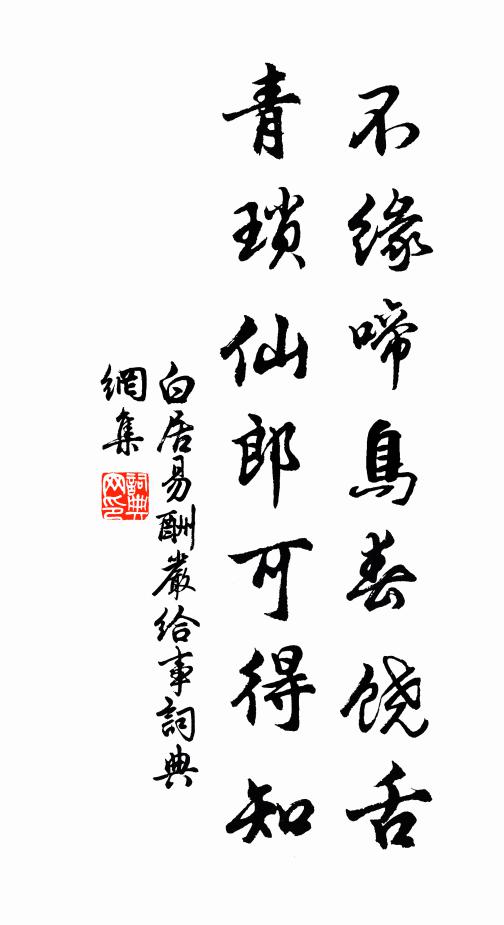 不缘啼鳥春饶舌
青琐仙郎可得知
白居易酬嚴给事詞典
網集
詞典网印